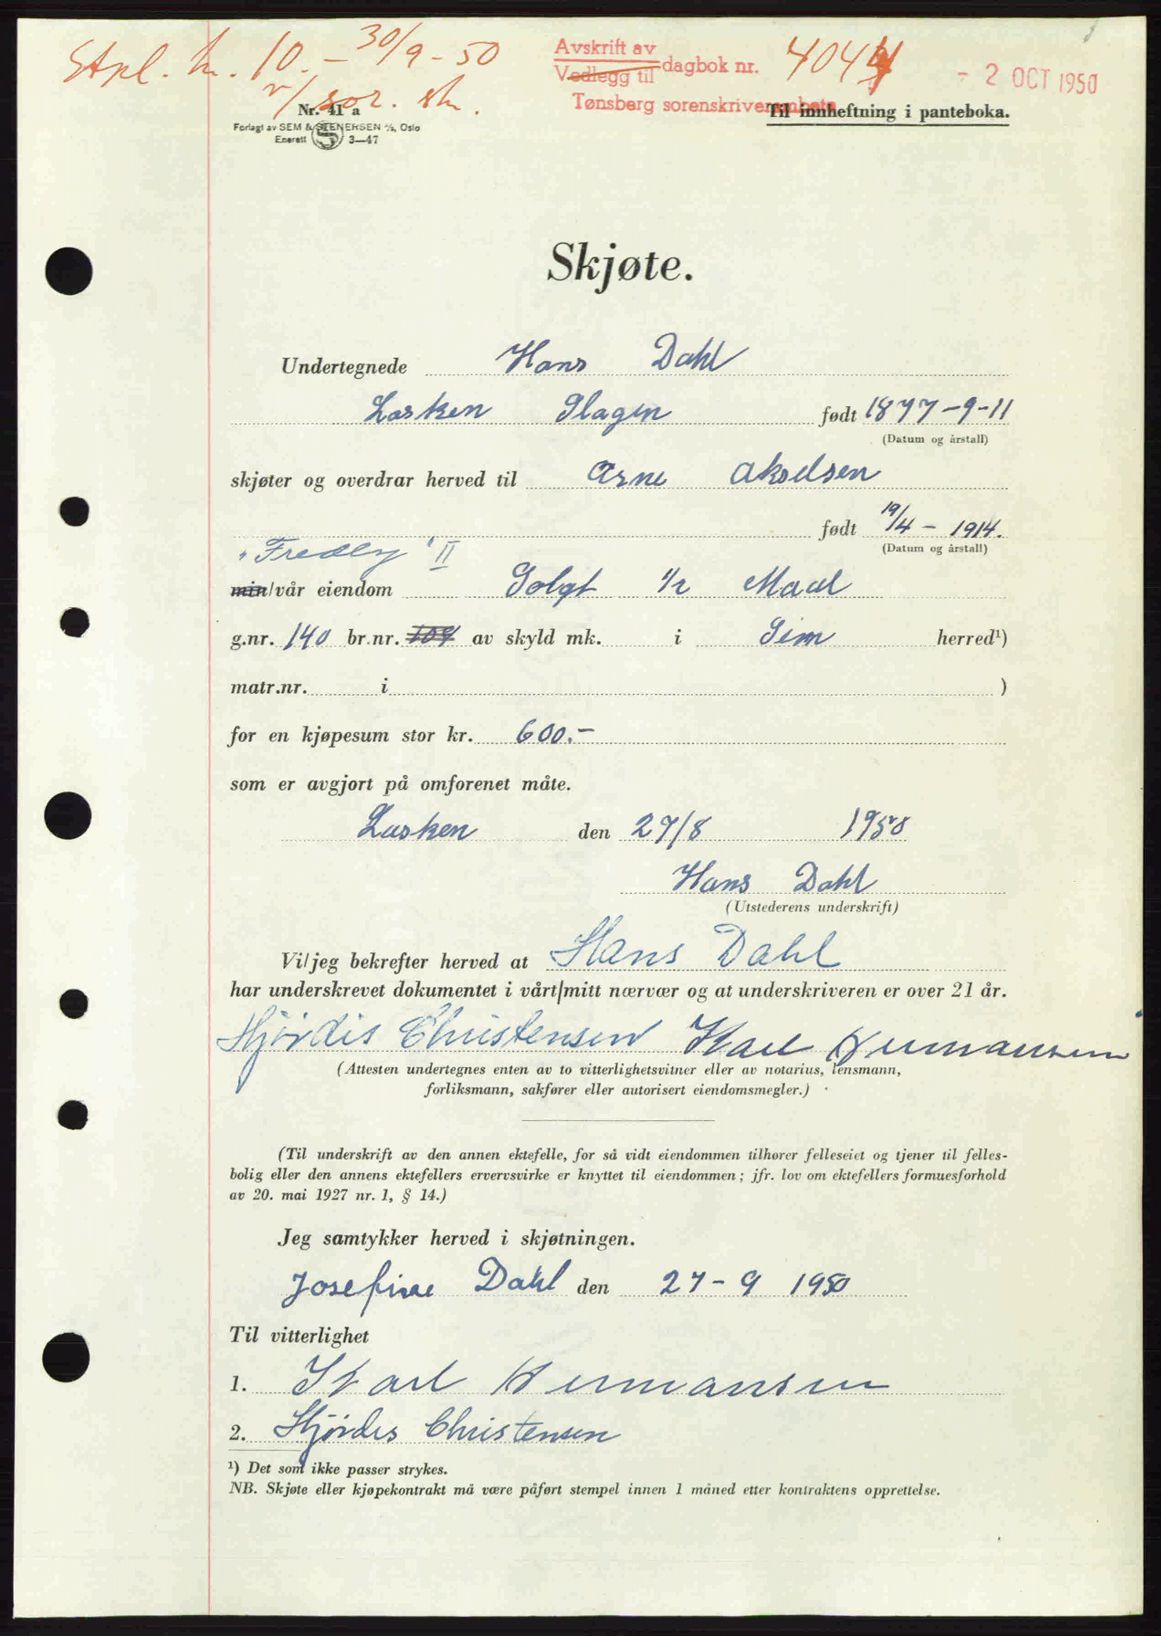 Stpl. kr. 10.- 30/9-50
v/ sor. skr.
Avskrift av
Vedlegg til dagbok nr. 4044
- 2 OCT 1950
Tønsberg sorenskriverembete
Nr. 41 a
Til innheftning i panteboka.
Forlagt av SEM & STENERSEN A/S, Oslo
Enerett 3—47
Skjøte.
Undertegnede Hans Dahl
Lasken Slagen født 1877-9-11
(Datum og årstall)
skjøter og overdrar herved til Arne Akselsen
født 19/4 - 1914.
"Fredly" II (Datum og årstall)
min/vår eiendom Solgt 1/2 Maal
g.nr. 140 br.nr. 104 av skyld mk. i Sem herred¹)
matr.nr. i )
for en kjøpesum stor kr. 600.-
som er avgjort på omforenet måte.
Lasken den 27/8 1950
Hans Dahl
(Utstederens underskrift)
Vi/jeg bekrefter herved at Hans Dahl
har underskrevet dokumentet i vårt/mitt nærvær og at underskriveren er over 21 år.
Hjördis Christensen Karl Hermansen
(Attesten undertegnes enten av to vitterlighetsvitner eller av notarius, lensmann,
forliksmann, sakfører eller autorisert eiendomsmegler.)
(Til underskrift av den annen ektefelle, for så vidt eiendommen tilhører felleseiet og tjener til felles-
bolig eller den annens ektefellers ervervsvirke er knyttet til eiendommen; jfr. lov om ektefellers formuesforhold
av 20. mai 1927 nr. 1, § 14.)
Jeg samtykker herved i skjøtningen.
Josefine Dahl den 27-9 1950
Til vitterlighet
1. Karl Hermansen
2. Hjördis Christensen
¹) Det som ikke passer strykes.
NB. Skjøte eller kjøpekontrakt må være påført stempel innen 1 måned etter kontraktens opprettelse.